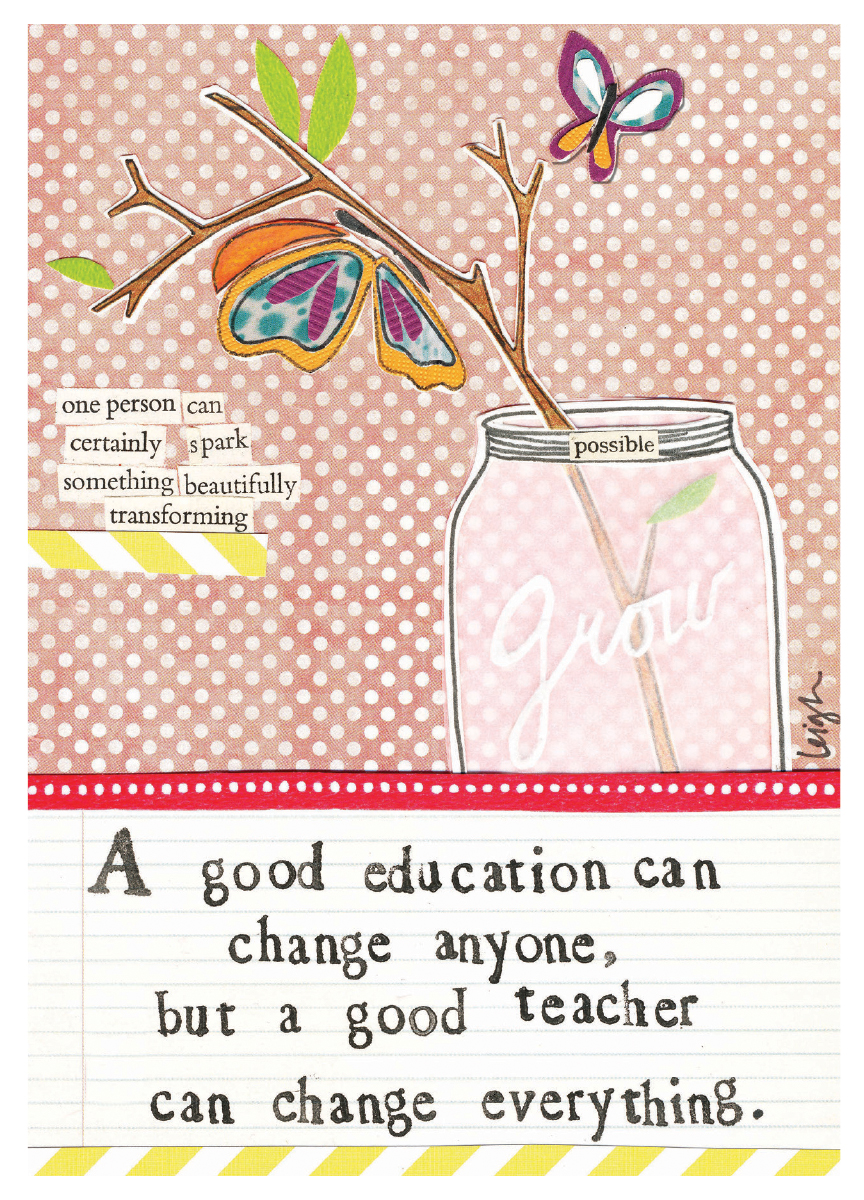 one person can
certainly spark
something beautifully
transforming
possible
grow
Leigh
A good education can
change anyone,
but a good teacher
can change everything.